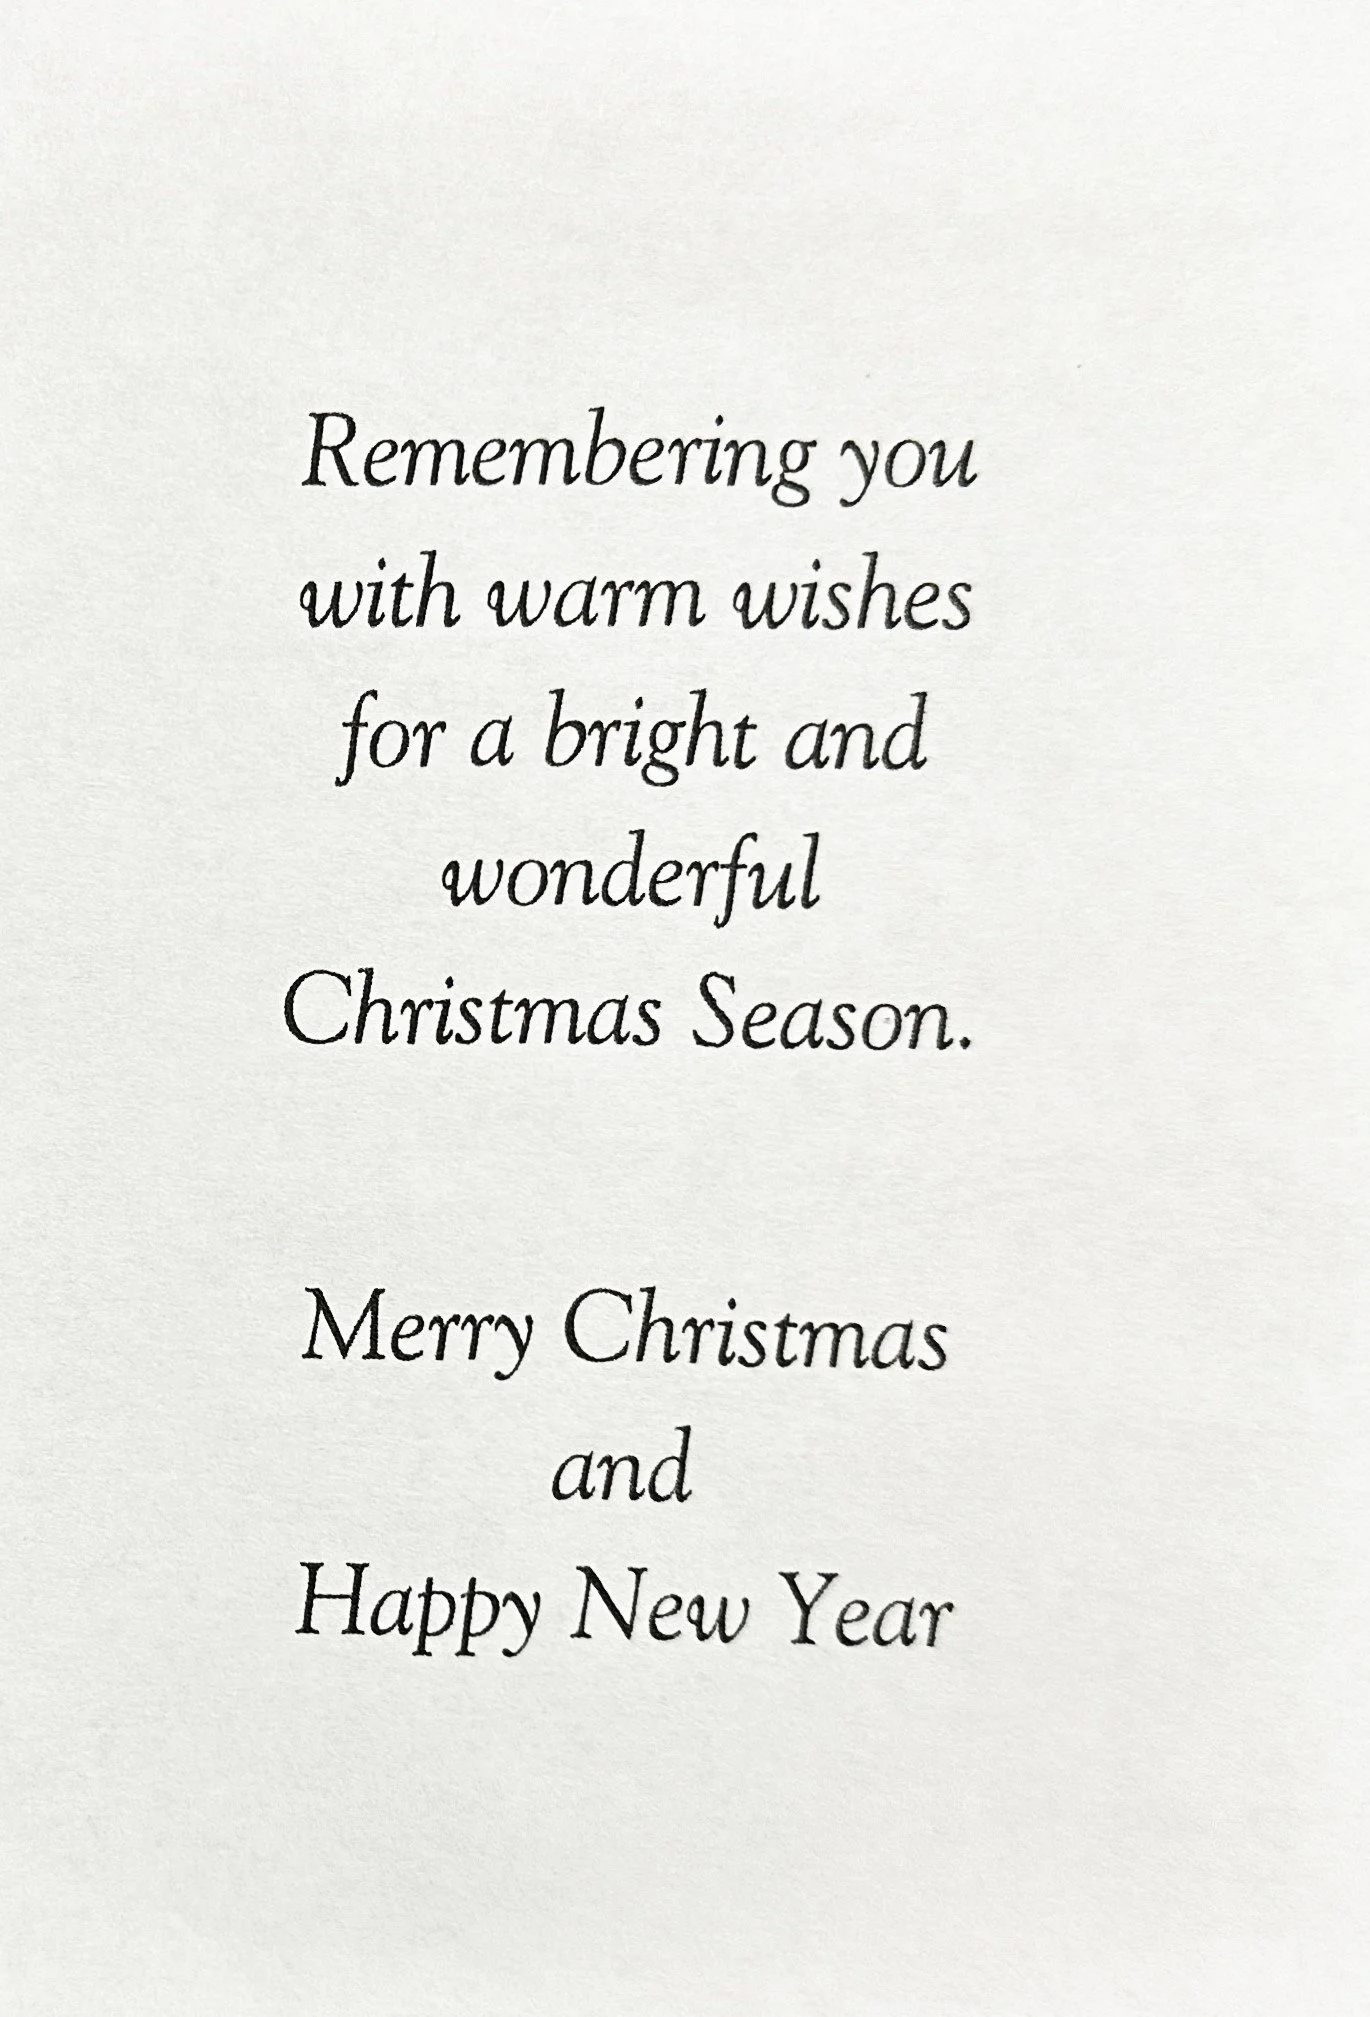 Remembering you
with warm wishes
for a bright and
wonderful
Christmas Season.
Merry Christmas
and
Happy New Year